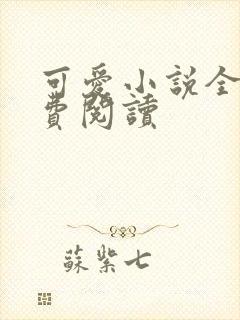 可愛小説全
費閱讀
蘇紫七